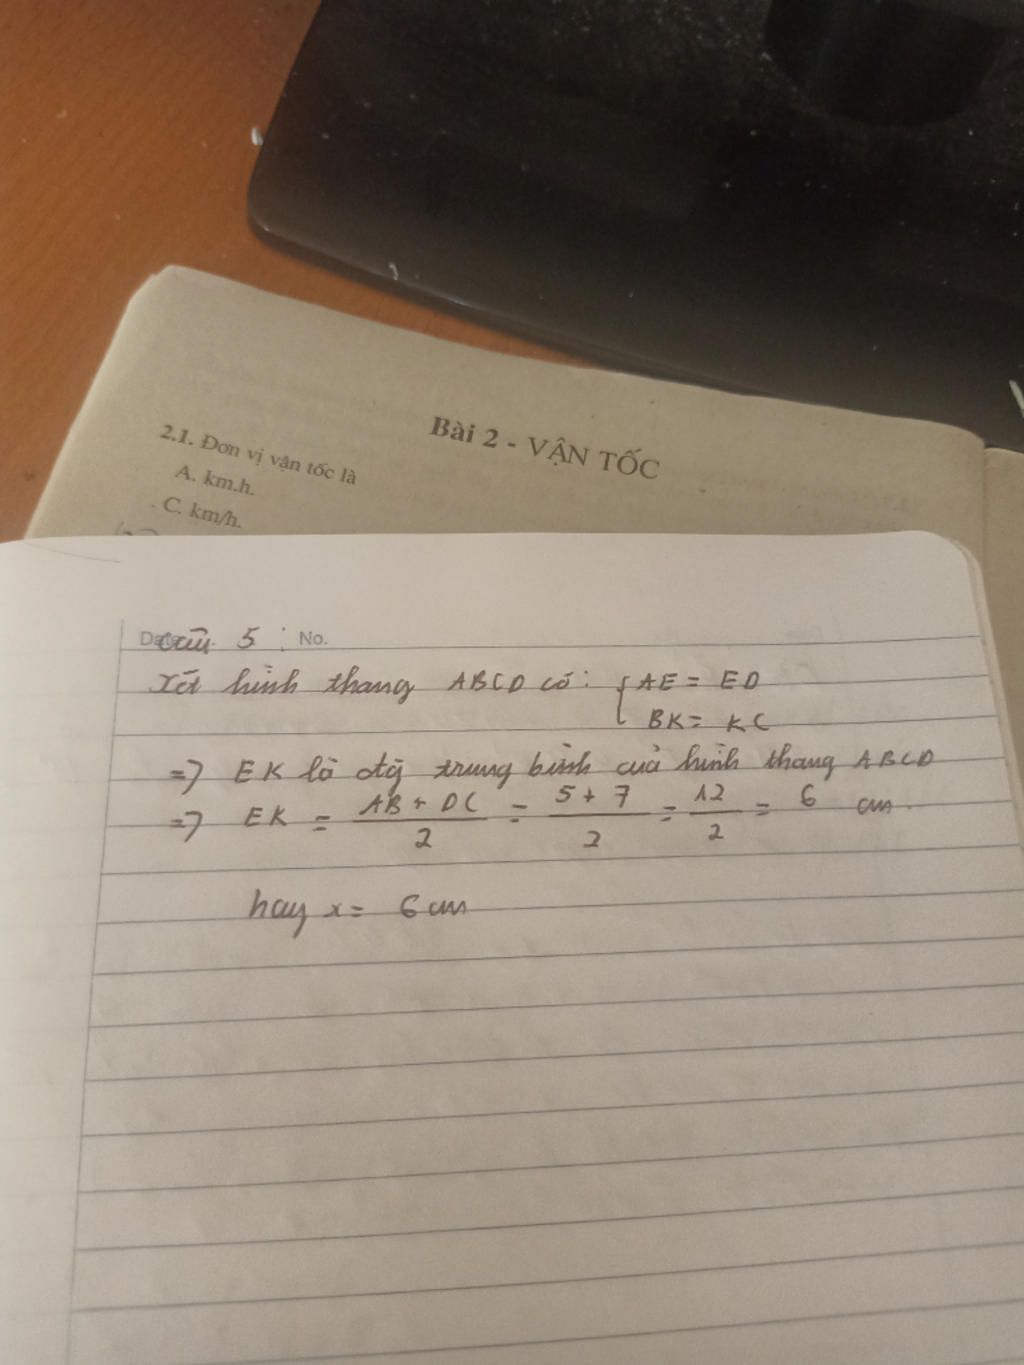 Bài 2 - VẬN TỐC
2.1. Đơn vị vận tốc là
A. km.h.
C. km/h.
Date No.
câu 5 :
Xét hình thang ABCD có: { AE = ED
BK = KC
=> EK là đg trung bình của hình thang ABCD
=> EK = AB + DC / 2 = 5 + 7 / 2 = 12 / 2 = 6 cm.
hay x = 6 cm